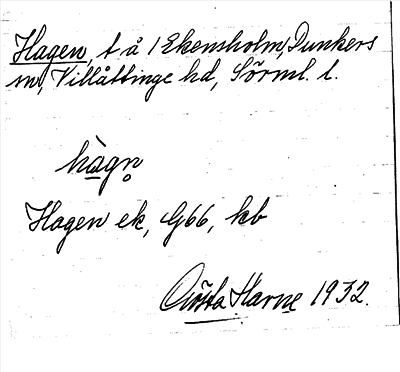 Hagen, t å 1 Ekensholm, Dunkers
sn, Villåttinge hd, Sörml. l.
hàgn̥
Hagen ek, G66, kb
Gösta Harne 1932.